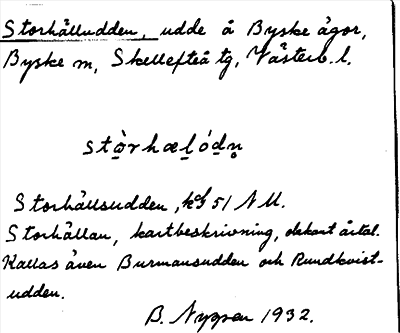 Storhälludden, udde å Byske ägor,
Byske m, Skellefteå tg, Västerb. l.
stòrhælódn
Storhällsudden, kbl 51 NU.
Storhällan, kartbeskrivning, okänt årtal.
Kallas även Burmansudden och Rundkvist-
udden.
B. Nygren 1932.